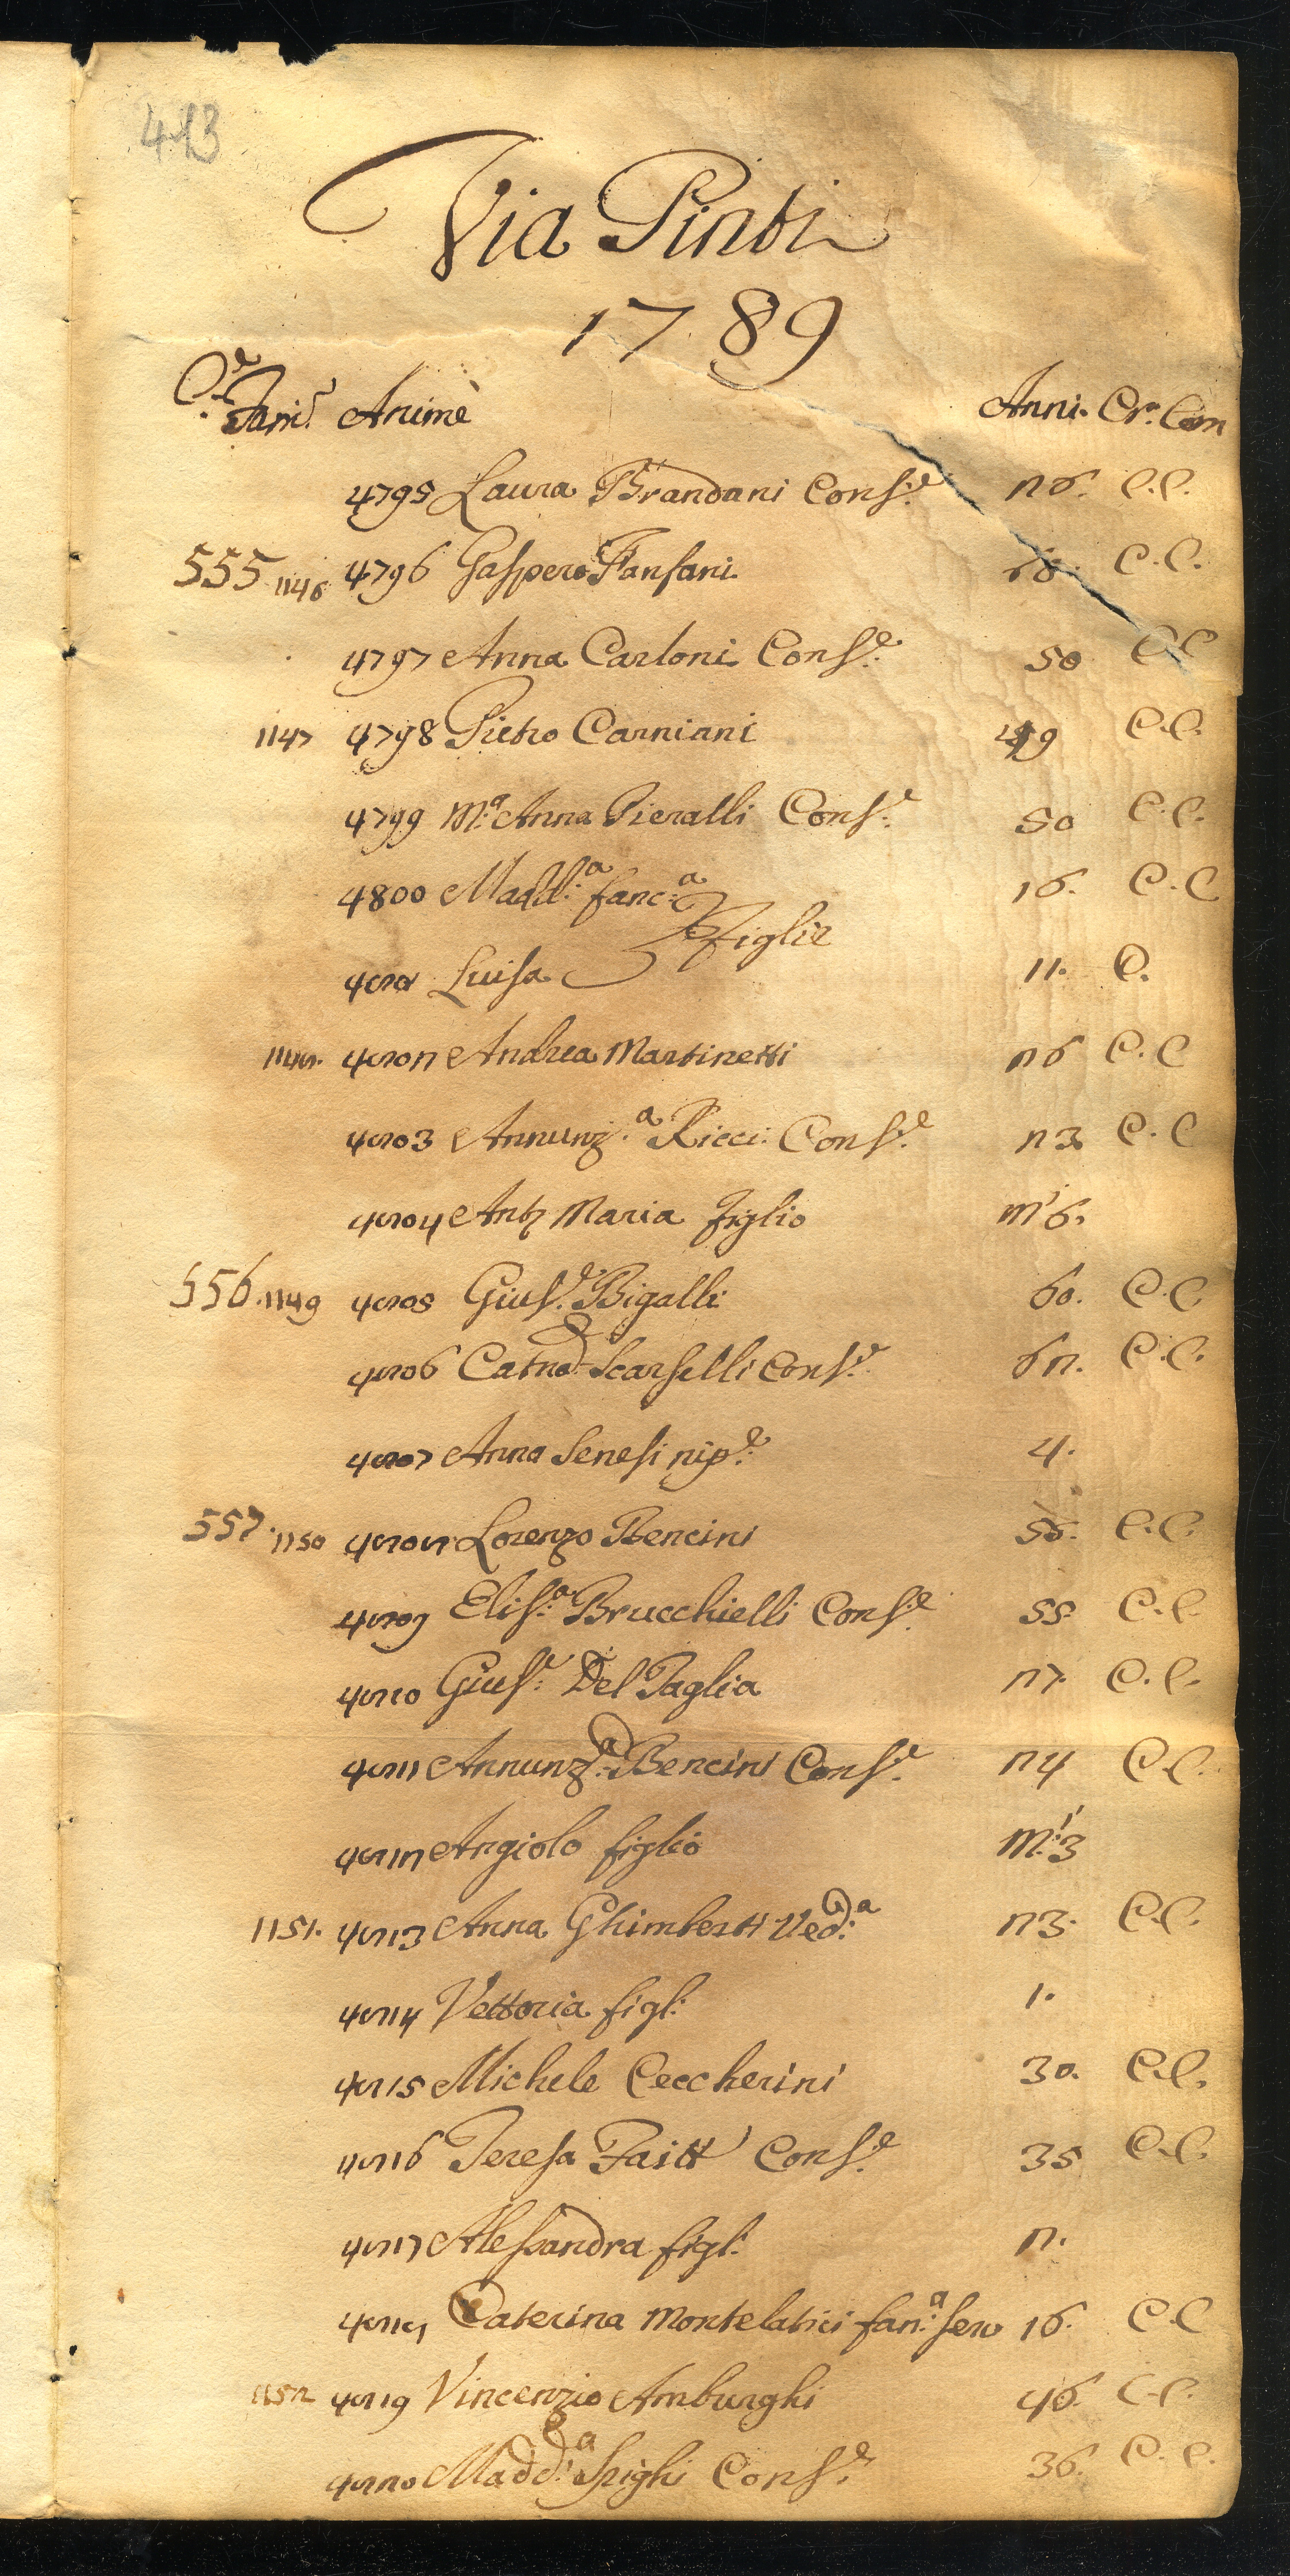 413
Via Pinti
1789
Ce. Fam.e Anime Anni. Cr.a Com
4795 Laura Brandani Cons.e 26. C.C.
555 1146 4796 Gaspero Fanfani 68. C.C.
4797 Anna Carloni Cons.e 50 C.C
1147 4798 Pietro Carniani 49 C.C.
4799 M.a Anna Pieralli Cons.e 50 C.C.
4800 Madd.a fanc.a 16. C.C
figlie
4801 Luisa 11. C.
1148. 4802 Andrea Martinetti 26 C.C
4803 Annunz.a Ricci Cons.e 23 C.C
4804 Ant Maria figlio m.i 6.
556. 1149 4805 Gius.e Bigalli 60. C.C
4806 Catna. Scarselli Cons.e 62. C.C.
4807 Anna Senesi nip.e 4.
557. 1150 4808 Lorenzo Bencini 56. C.C.
4809 Elis.a Brucchielli Cons.e 55. C.C.
4810 Gius.e Del Taglia 27. C.C.
4811 Annunz.a Bencini Cons.e 24 C.C.
4812 Angiolo figlio M.i 3
1151. 4813 Anna Ghimberti Ved.a 23. C.C.
4814 Vettoria figl. 1.
4815 Michele Ceccherini 30. C.C.
4816 Teresa Faitt Cons.e 35 C.C.
4817 Alessandra figl. 2.
4818 Caterina Montelatici fan.a serv 16. C.C
1152 4819 Vincenzio Amburghi 46. C.C.
4820 Madd.a Spighi Cons.e 36. C.C.